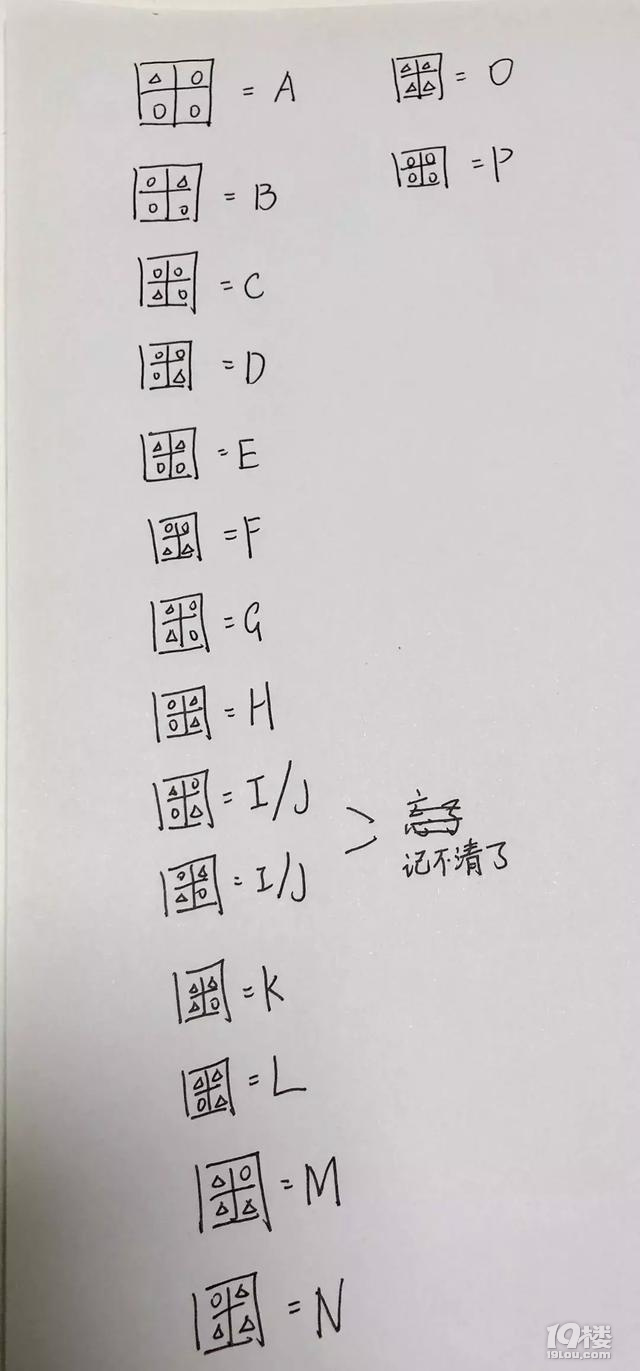 = A
= B
= C
= D
= E
= F
= G
= H
= I/J
= I/J
记不清了
= K
= L
= M
= N
= O
= P
19楼
19lou.com